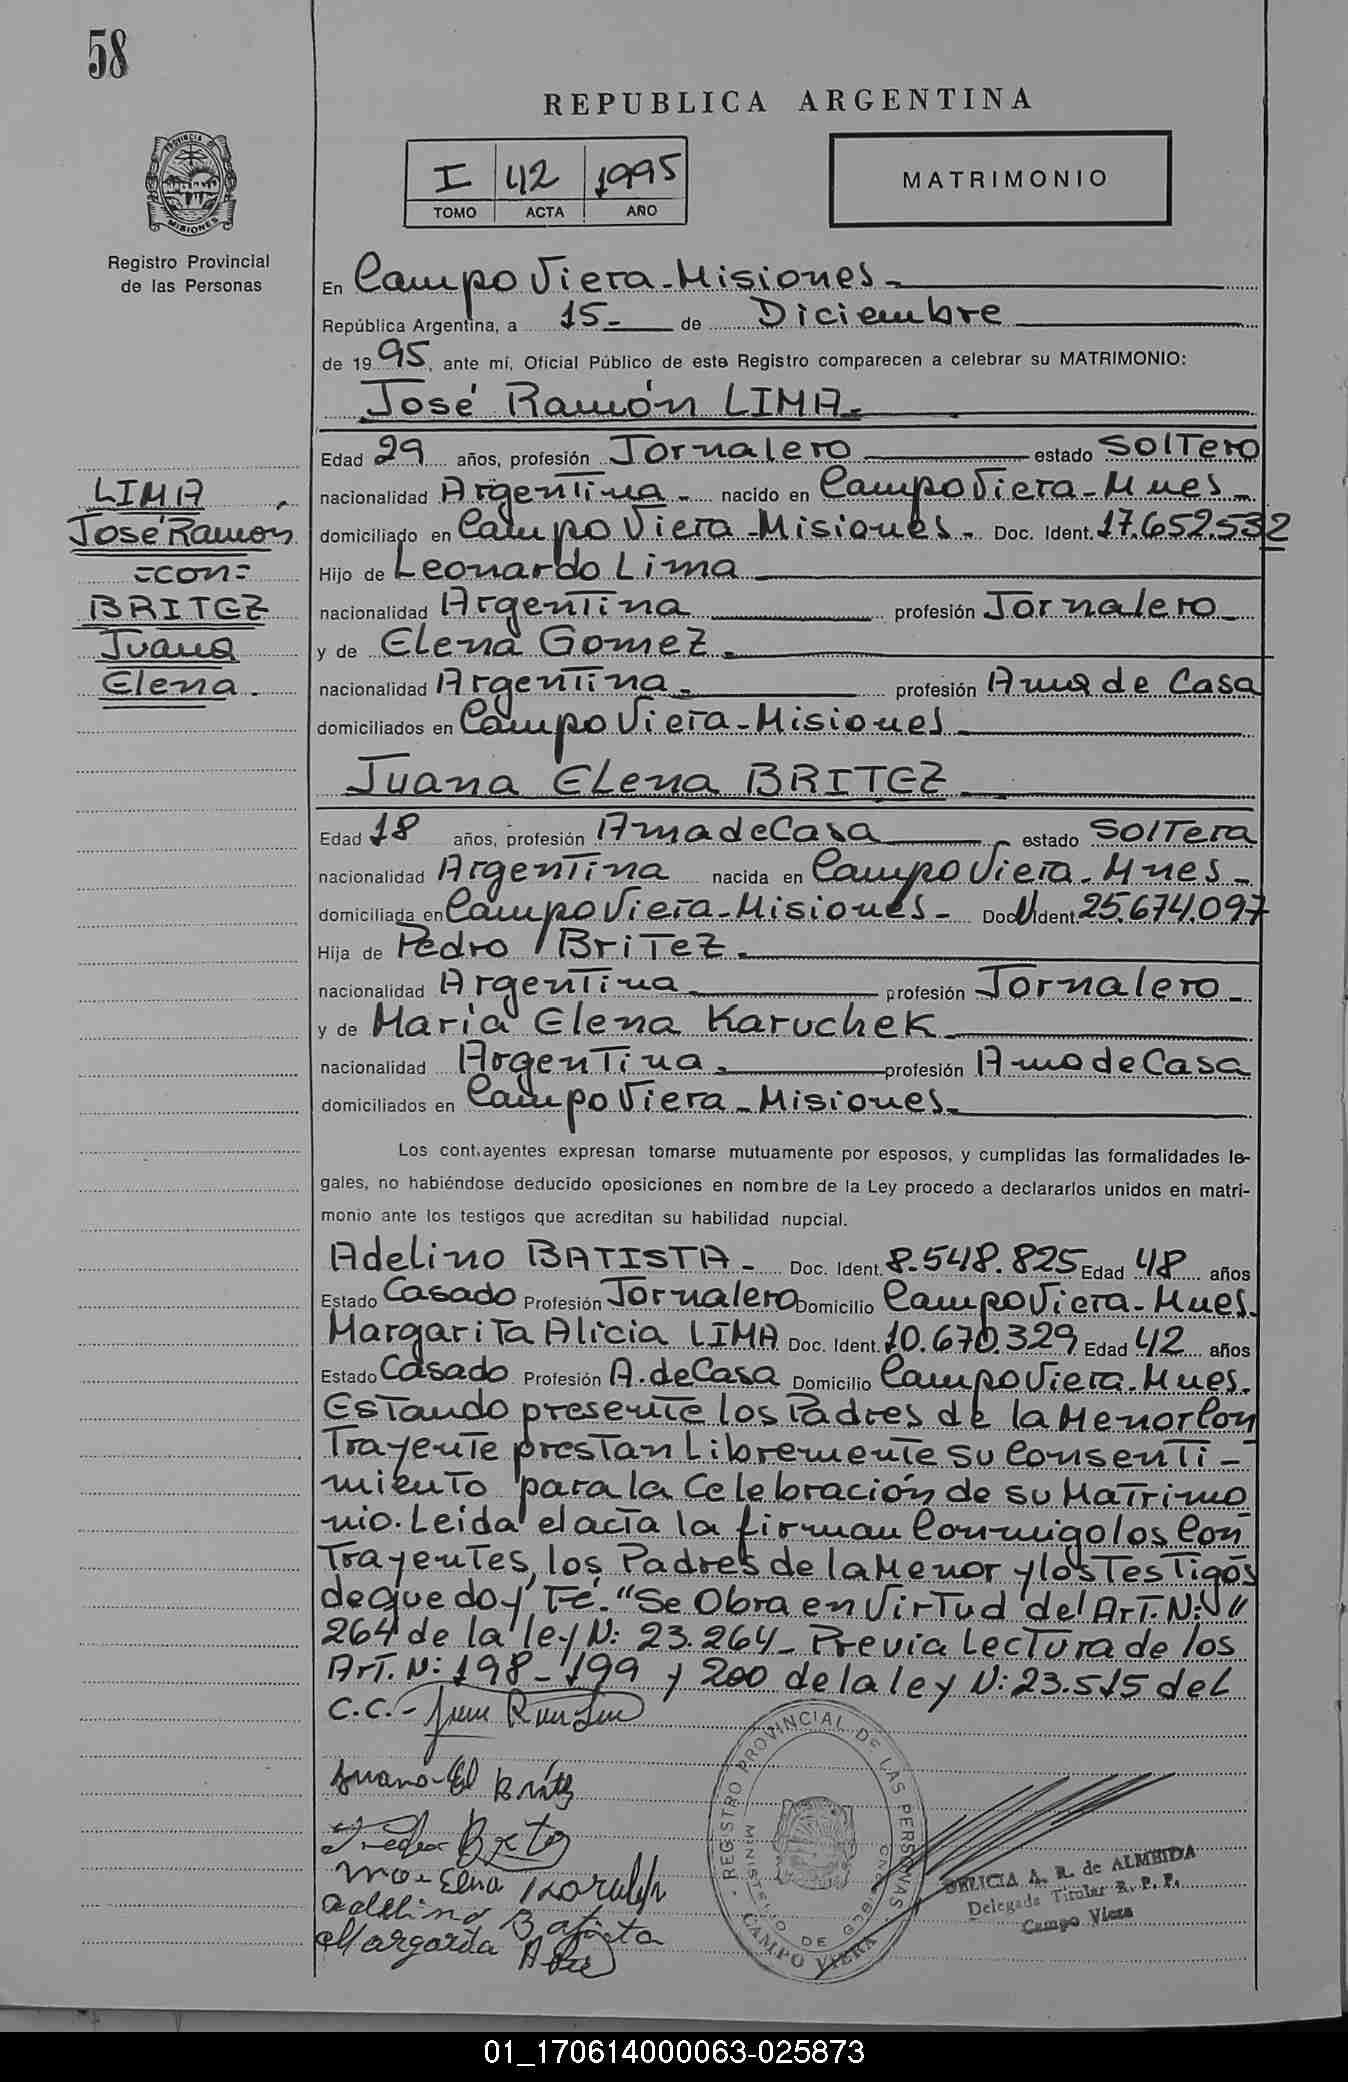 58
REPUBLICA ARGENTINA
I 42 1995
TOMO ACTA AÑO
MATRIMONIO
PROVINCIA DE MISIONES
Registro Provincial
de las Personas
En Campo Viera - Misiones -
República Argentina, a 15- de Diciembre
de 1995, ante mí, Oficial Público de este Registro comparecen a celebrar su MATRIMONIO:
José Ramón LIMA.
Edad 29 años, profesión Jornalero estado Soltero
nacionalidad Argentina - nacido en Campo Viera - Mnes -
domiciliado en Campo Viera - Misiones. Doc. Ident. 17.652.532
Hijo de Leonardo Lima
nacionalidad Argentina profesión Jornalero -
y de Elena Gomez.
nacionalidad Argentina. profesión Ama de Casa
domiciliados en Campo Viera - Misiones
LIMA
José Ramón
=con=
BRITEZ
Juana
Elena.
Juana Elena BRITEZ
Edad 18 años, profesión Ama de Casa estado Soltera
nacionalidad Argentina nacida en Campo Viera - Mnes -
domiciliada en Campo Viera - Misiones - Doc. Ident. 25.674.097
Hija de Pedro BriTeZ.
nacionalidad Argentina. profesión Jornalero -
y de Maria Elena Karuchek
nacionalidad Argentina. profesión Ama de Casa
domiciliados en Campo Viera - Misiones -
Los contrayentes expresan tomarse mutuamente por esposos, y cumplidas las formalidades le-
gales, no habiéndose deducido oposiciones en nombre de la Ley procedo a declararlos unidos en matri-
monio ante los testigos que acreditan su habilidad nupcial.
Adelino BATISTA - Doc. Ident. 8.548.825 Edad 48 años
Estado Casado Profesión Jornalero Domicilio Campo Viera - Mnes.
Margarita Alicia LIMA Doc. Ident. 10.670.329 Edad 42 años
Estado Casado Profesión A. de Casa Domicilio Campo Viera. Mnes.
Estando presente los Padres de la Menor Con
Trayente prestan Libremente su Consenti-
miento para la Celebración de su Matrimo
nio. Leida el acta la firman Conmigo los Con
Trayentes, los Padres de la Menor y los Testigos
de que doy Fé. "Se Obra en Virtud del Art. N: "
264 de la ley N: 23.264 - Previa Lectura de los
Art. N: 198 - 199 y 200 de la ley N: 23.515 del
C.C. -
Juana El Britez
Adelino Batista
Margarita
REGISTRO PROVINCIAL DE LAS PERSONAS
MINISTERIO DE GOBIERNO
CAMPO VIERA
DELICIA A. R. de ALMEIDA
Delegada Titular R. P. P.
Campo Viera
01_170614000063-025873